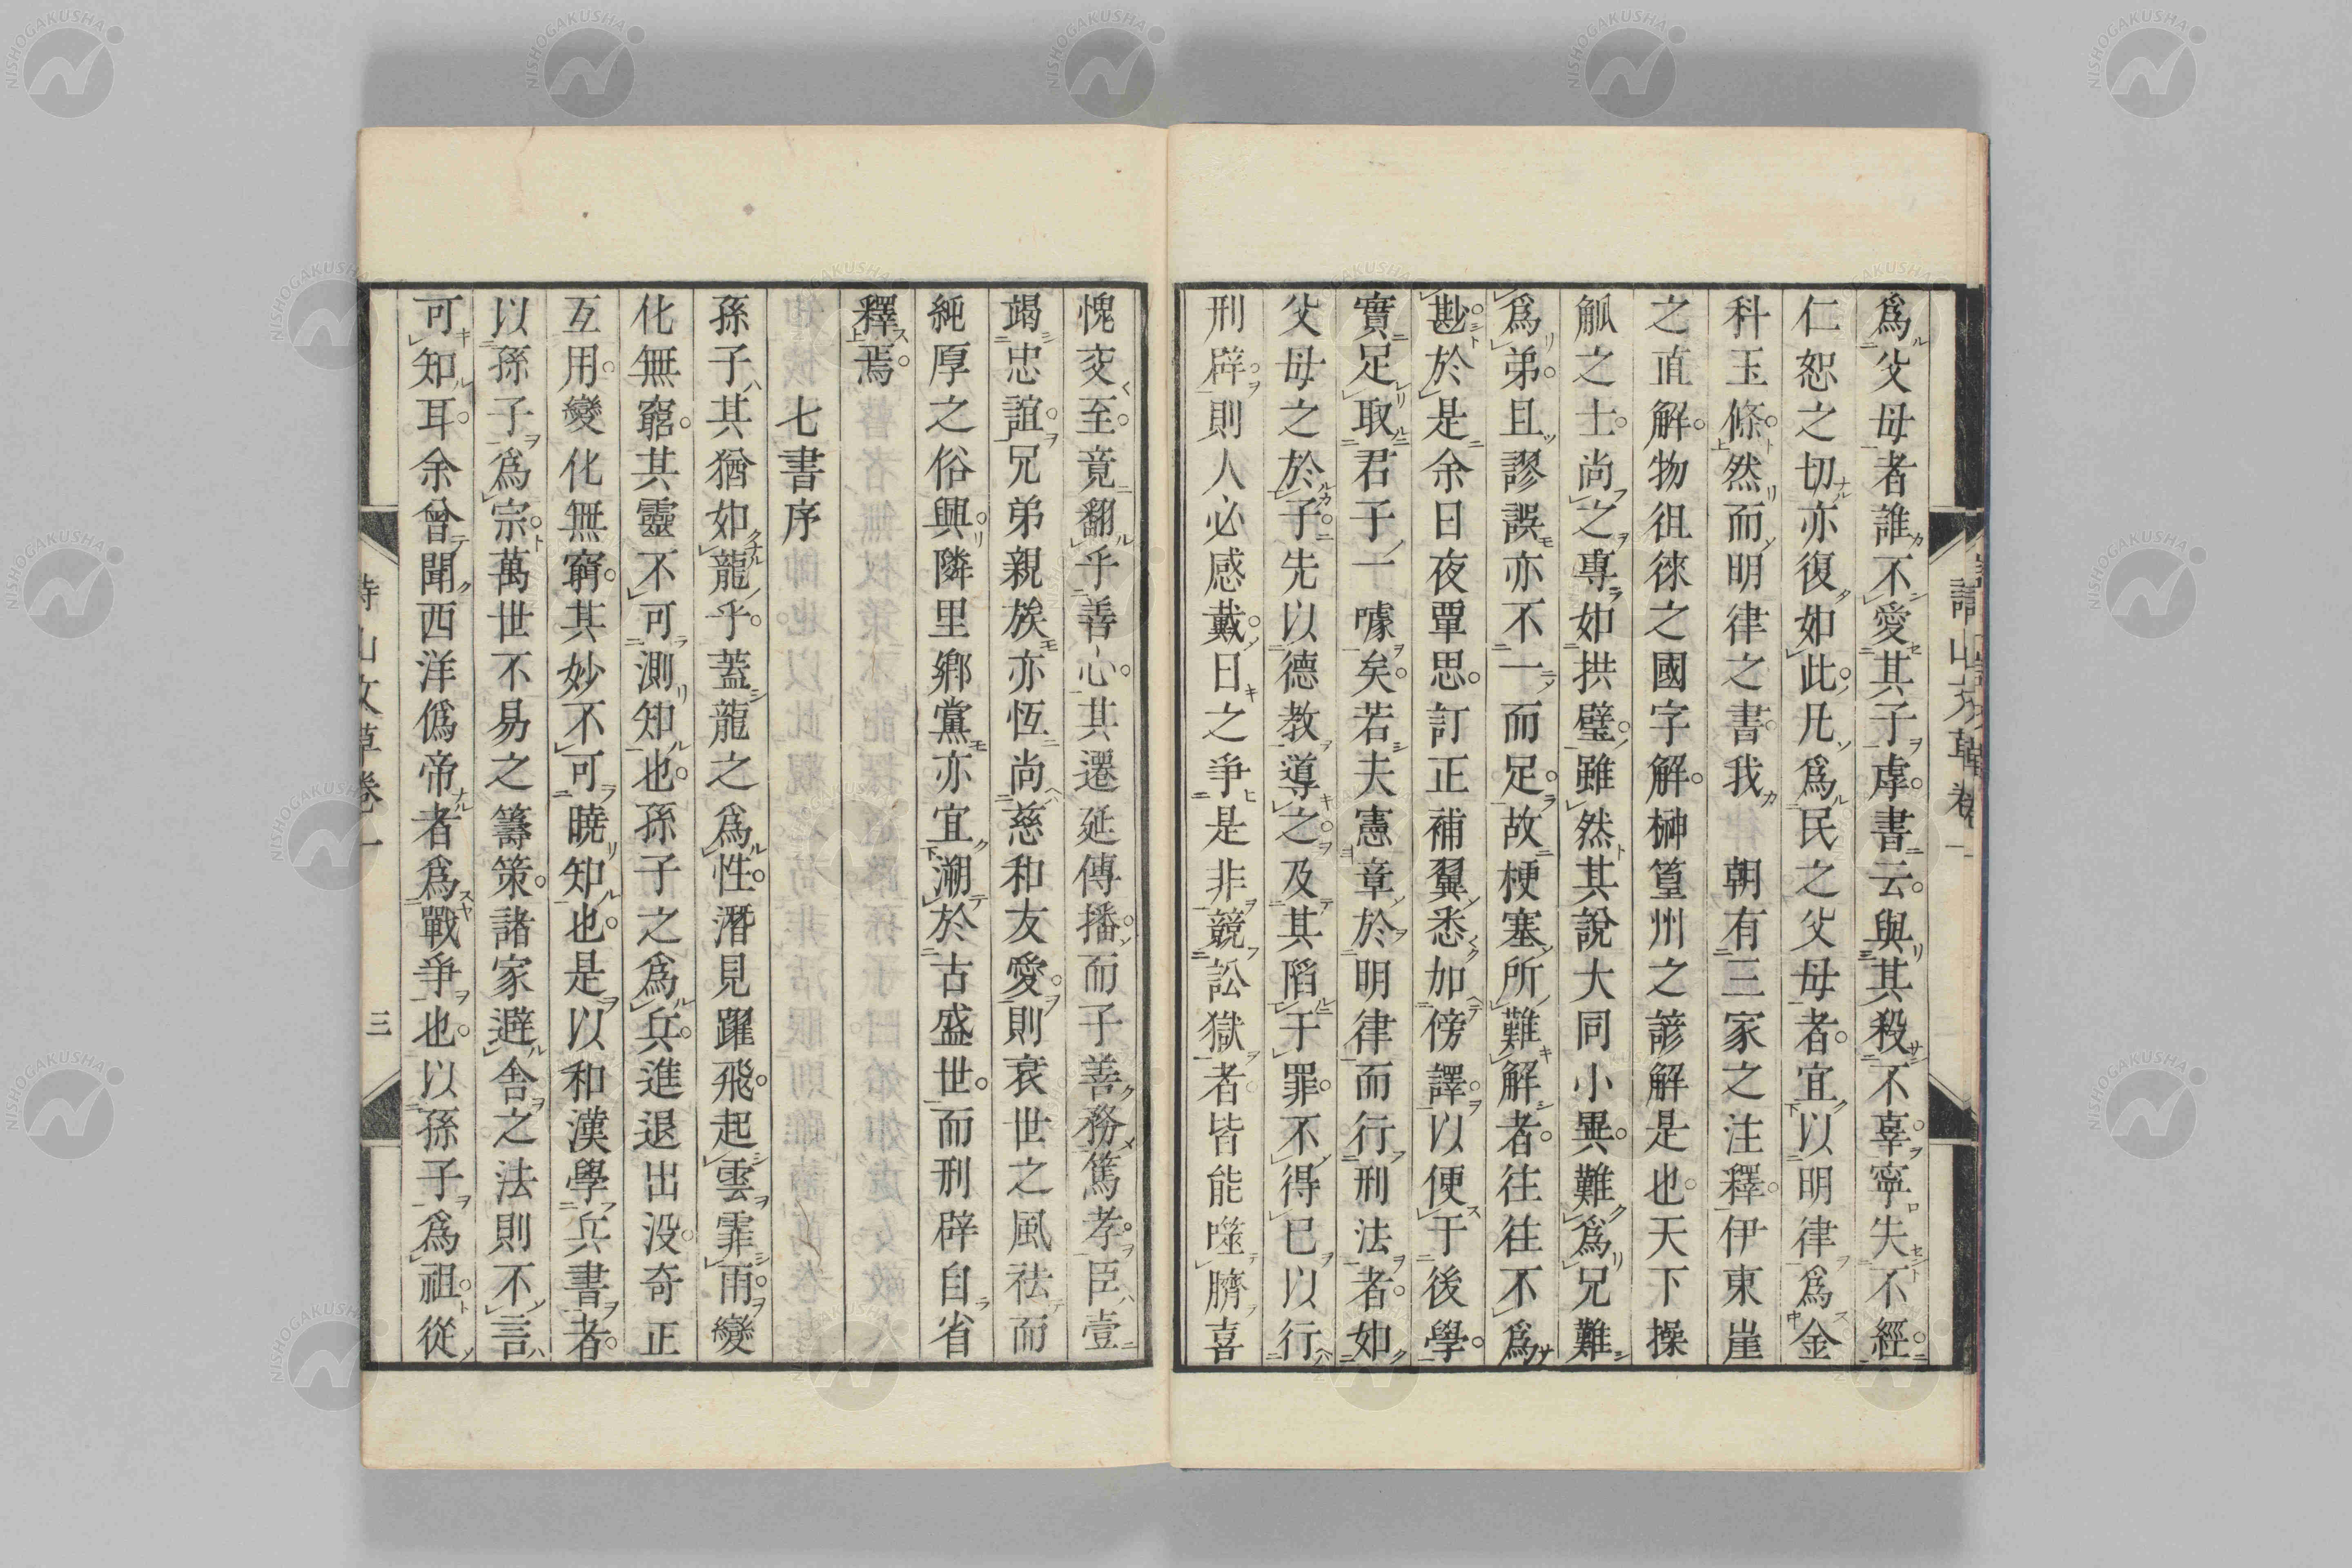 爲父母者誰不愛其子虖書云與其殺不辜寧失不經
仁恕之切亦復如此凡爲民之父母者宜以明律爲金
科玉條然而明律之書我 朝有三家之注釋伊東崖
之直解物徂徠之國字解榊篁州之諺解是也天下操
觚之士尚之專如拱璧雖然其說大同小異難爲兄難
爲弟且謬誤亦不一而足故梗塞所難解者往往不爲
尠於是余日夜覃思訂正補翼悉加傍譯以便于後學
實足取君子一噱矣若夫憲章於明律而行刑法者如
父母之於子先以德教導之及其陷于罪不得已以行
刑辟則人必感戴曰之爭是非競訟獄者皆能噬臍喜
愧交至竟翻乎善心其遷延傳播而子善務篤孝臣壹
竭忠誼兄弟親族亦恆尚慈和友愛則衰世之風祛而
純厚之俗興隣里鄉黨亦宜溯於古盛世而刑辟自省
釋焉
七書序
孫子其猶如龍乎蓋龍之爲性潛見躍飛起雲霏雨變
化無窮其靈不可測知也孫子之爲兵進退出沒奇正
互用變化無窮其妙不可曉知也是以和漢學兵書者
以孫子爲宗萬世不易之籌策諸家避舍之法則不言
可知耳余曾聞西洋僞帝者爲戰爭也以孫子爲祖從
山文草卷一
三
NISHOGAKUSHA